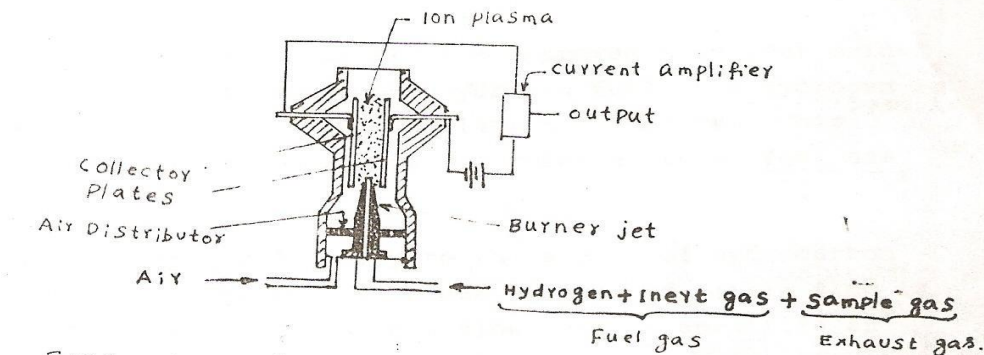 Ion plasma
current amplifier
output
Collector
Plates
Air Distributor
Burner jet
Air
Hydrogen + Inert gas + sample gas
Fuel gas
Exhaust gas.